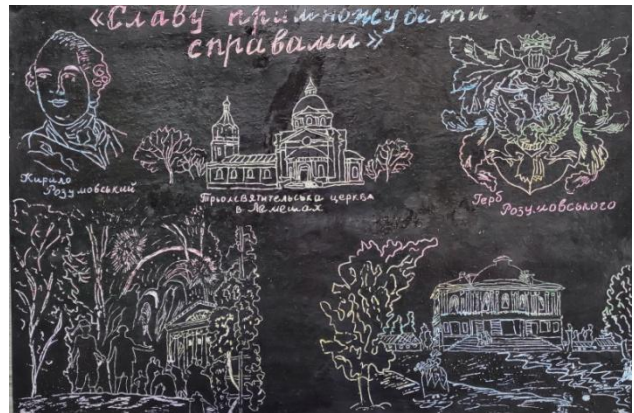 «Славу примножувати
справами»
Кирило
Розумовський
Трьохсвятительська церква
в Лемешах
Герб
Розумовського